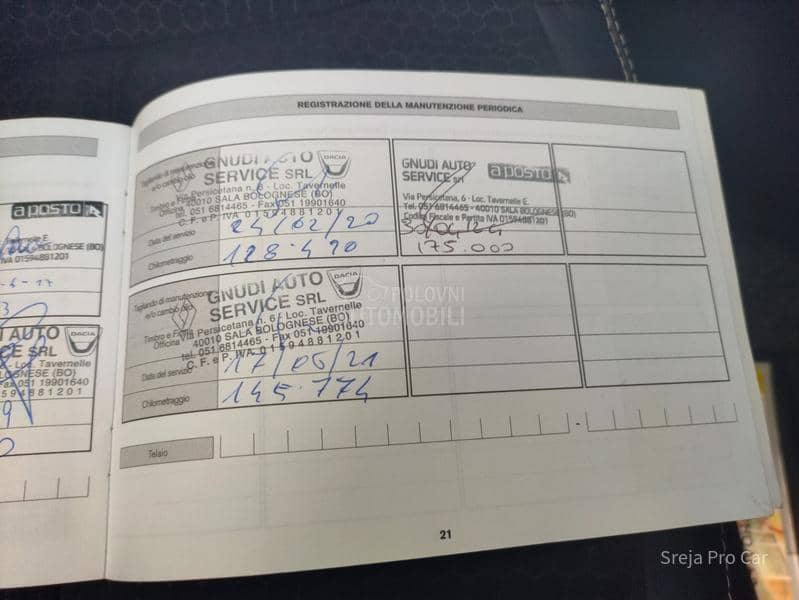 REGISTRAZIONE DELLA MANUTENZIONE PERIODICA
a posto
E.
BOLOGNESE (BO)
IVA 01594881201
AUTO
CE SRL
DACIA
Loc. Tavernelle
BOLOGNESE (BO)
Fax 051 19901640
594881201
Tagliando di manutenzione
e/o cambio olio
Timbro e Firma
Officina
Data del servizio
Chilometraggio
GNUDI AUTO
SERVICE SRL
DACIA
Via Persicetana n. 6 - Loc. Tavernelle
40010 SALA BOLOGNESE (BO)
tel. 051 6814465 - Fax 051 19901640
C. F. e P. IVA 01594881201
24/02/20
128.490
GNUDI AUTO
SERVICE srl
a posto
Via Persicetana, 6 - Loc. Tavernelle E.
Tel. 051 6814465 - 40010 SALA BOLOGNESE (BO)
Codice Fiscale e Partita IVA 01594881201
175.000
Tagliando di manutenzione
e/o cambio olio
Timbro e Firma
Officina
Data del servizio
Chilometraggio
GNUDI AUTO
SERVICE SRL
DACIA
Via Persicetana n. 6 / Loc. Tavernelle
40010 SALA BOLOGNESE (BO)
tel. 051 6814465 - Fax 051 19901640
C. F. e P. IVA 01594881201
17/05/21
145.774
POLOVNI
AUTOMOBILI
Telaio
-
21
Sreja Pro Car